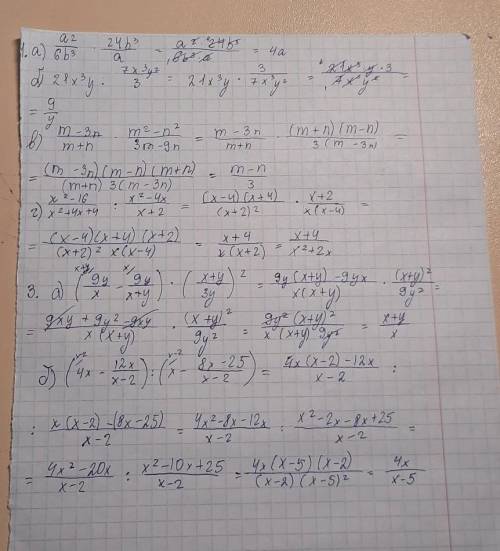 1. а) a²/6b³ · 24b³/a = a² 24b³/6b³ a = 4a
б) 21x³y : 7x³y²/3 = 21x³y · 3/7x³y² = 21x³y · 3/7x³y² =
= 9/y
в) m-3n/m+n · m²-n²/3m-9n = m-3n/m+n · (m+n)(m-n)/3(m-3n) =
(m-3n)(m-n)(m+n)/(m+n) 3(m-3n) = m-n/3
г) x²-16/x²+4x+4 : x²-4x/x+2 = (x-4)(x+4)/(x+2)² · x+2/x(x-4) =
= (x-4)(x+4)(x+2)/(x+2)² x(x-4) = x+4/x(x+2) = x+4/x²+2x
3. а) (9y/x - 9y/x+y) · (x+y/3y)² = 9y(x+y)-9yx/x(x+y) · (x+y)²/9y² =
= 9xy+9y²-9xy/x(x+y) · (x+y)²/9y² = 9y²(x+y)²/x(x+y) 9y² = x+y/x
б) (4x - 12x/x-2) : (x - 8x-25/x-2) = 4x(x-2)-12x/x-2 :
: x(x-2)-(8x-25)/x-2 = 4x²-8x-12x/x-2 : x²-2x-8x+25/x-2 =
= 4x²-20x/x-2 : x²-10x+25/x-2 = 4x(x-5)(x-2)/(x-2)(x-5)² = 4x/x-5